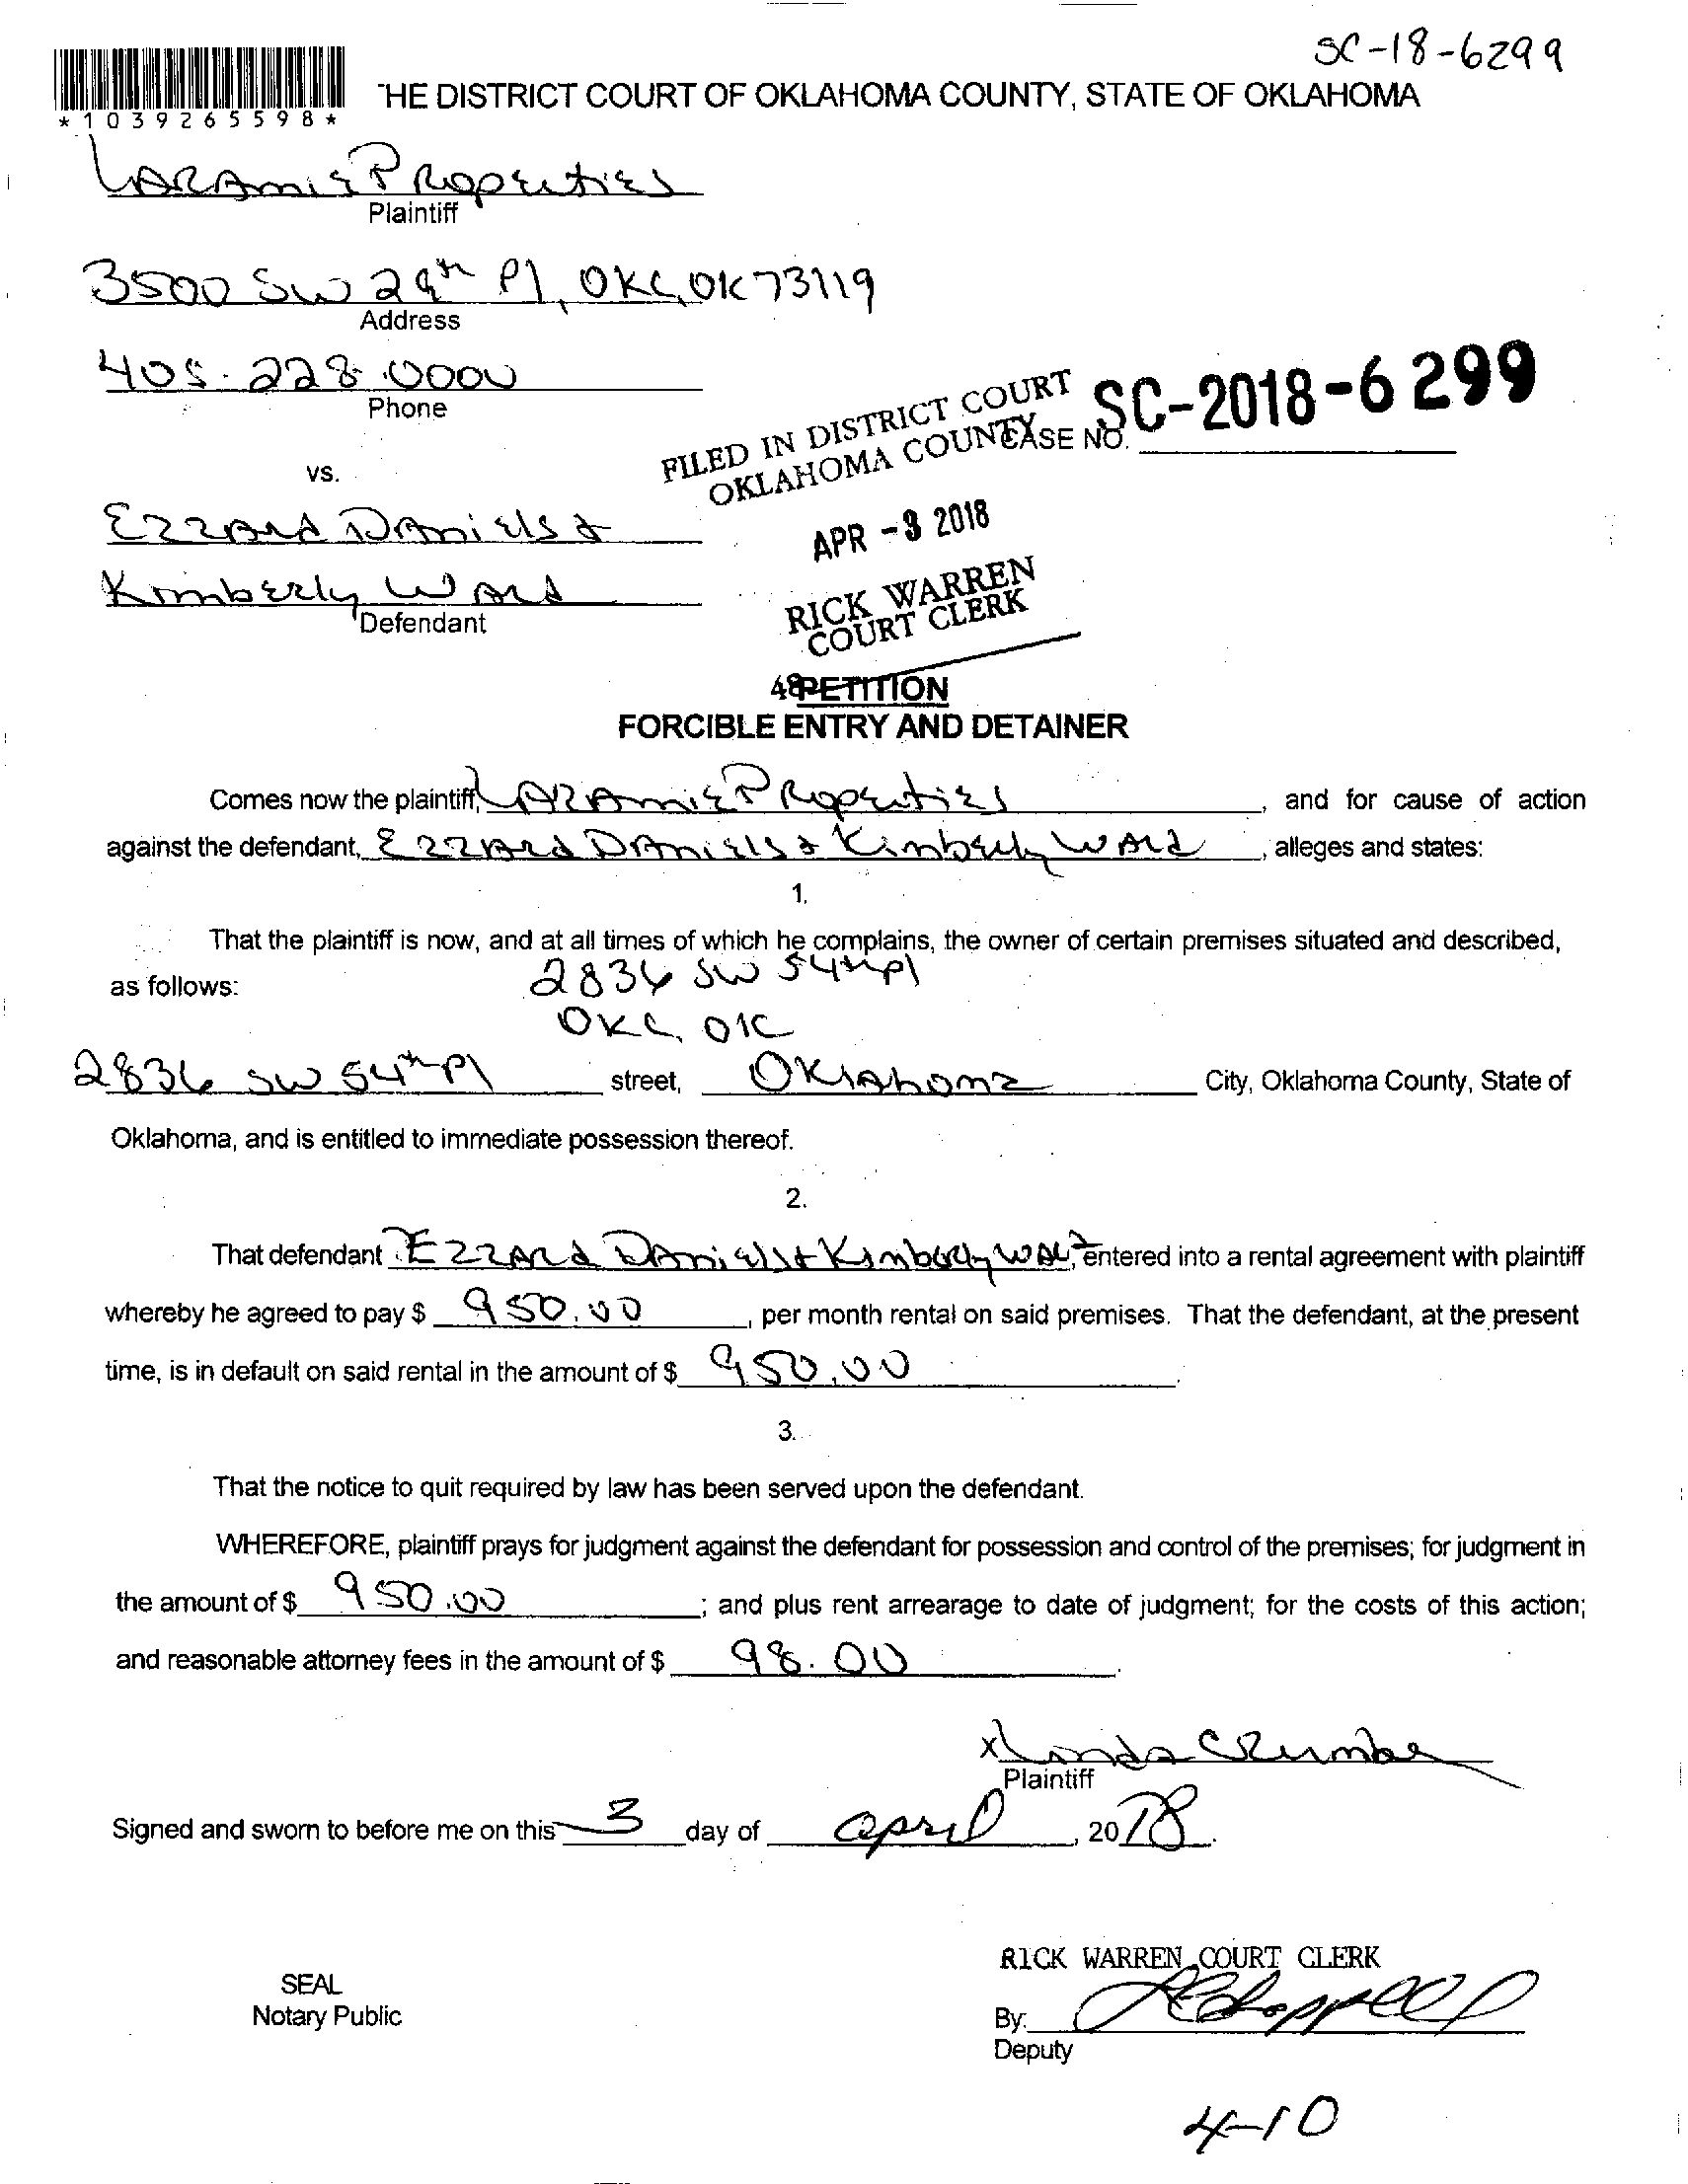 SC-18-6299
THE DISTRICT COURT OF OKLAHOMA COUNTY, STATE OF OKLAHOMA
*1039265598*
Laramie Properties
Plaintiff
3500 SW 29th Pl, OKC, OK 73119
Address
405-228-0000
Phone
FILED IN DISTRICT COURT
OKLAHOMA COUNTY
CASE NO. SC-2018-6299
vs.
Ezzard Daniels &
APR -3 2018
Kimberly Ward
Defendant
RICK WARREN
COURT CLERK
48
PETITION
FORCIBLE ENTRY AND DETAINER
Comes now the plaintiff, Laramie Properties, and for cause of action
against the defendant, Ezzard Daniels & Kimberly Ward, alleges and states:
1.
That the plaintiff is now, and at all times of which he complains, the owner of certain premises situated and described,
as follows: 2836 SW 54th Pl
OKC, OK
2836 SW 54th Pl street, Oklahoma City, Oklahoma County, State of
Oklahoma, and is entitled to immediate possession thereof.
2.
That defendant Ezzard Daniels & Kimberly Ward, entered into a rental agreement with plaintiff
whereby he agreed to pay $ 950.00, per month rental on said premises. That the defendant, at the present
time, is in default on said rental in the amount of $ 950.00.
3.
That the notice to quit required by law has been served upon the defendant.
WHEREFORE, plaintiff prays for judgment against the defendant for possession and control of the premises; for judgment in
the amount of $ 950.00; and plus rent arrearage to date of judgment; for the costs of this action;
and reasonable attorney fees in the amount of $ 98.00.
x Linda Crumba
Plaintiff
Signed and sworn to before me on this 3 day of april, 2018.
RICK WARREN COURT CLERK
SEAL
Notary Public
By:
Deputy
4-10